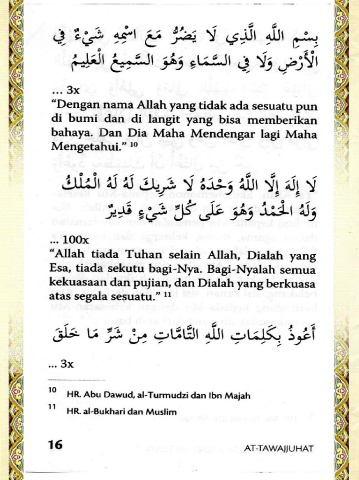 بِسْمِ اللَّهِ الَّذِي لَا يَضُرُّ مَعَ اسْمِهِ شَيْءٌ فِي
الْأَرْضِ وَلَا فِي السَّمَاءِ وَهُوَ السَّمِيعُ الْعَلِيمُ
... 3x
“Dengan nama Allah yang tidak ada sesuatu pun
di bumi dan di langit yang bisa memberikan
bahaya. Dan Dia Maha Mendengar lagi Maha
Mengetahui.” 10
لَا إِلَهَ إِلَّا اللَّهُ وَحْدَهُ لَا شَرِيكَ لَهُ لَهُ الْمُلْكُ
وَلَهُ الْحَمْدُ وَهُوَ عَلَى كُلِّ شَيْءٍ قَدِيرٌ
... 100x
“Allah tiada Tuhan selain Allah, Dialah yang
Esa, tiada sekutu bagi-Nya. Bagi-Nyalah semua
kekuasaan dan pujian, dan Dialah yang berkuasa
atas segala sesuatu.” 11
أَعُوذُ بِكَلِمَاتِ اللَّهِ التَّامَّاتِ مِنْ شَرِّ مَا خَلَقَ
... 3x
10 HR. Abu Dawud, al-Turmudzi dan Ibn Majah
11 HR. al-Bukhari dan Muslim
16 AT-TAWAJJUHAT